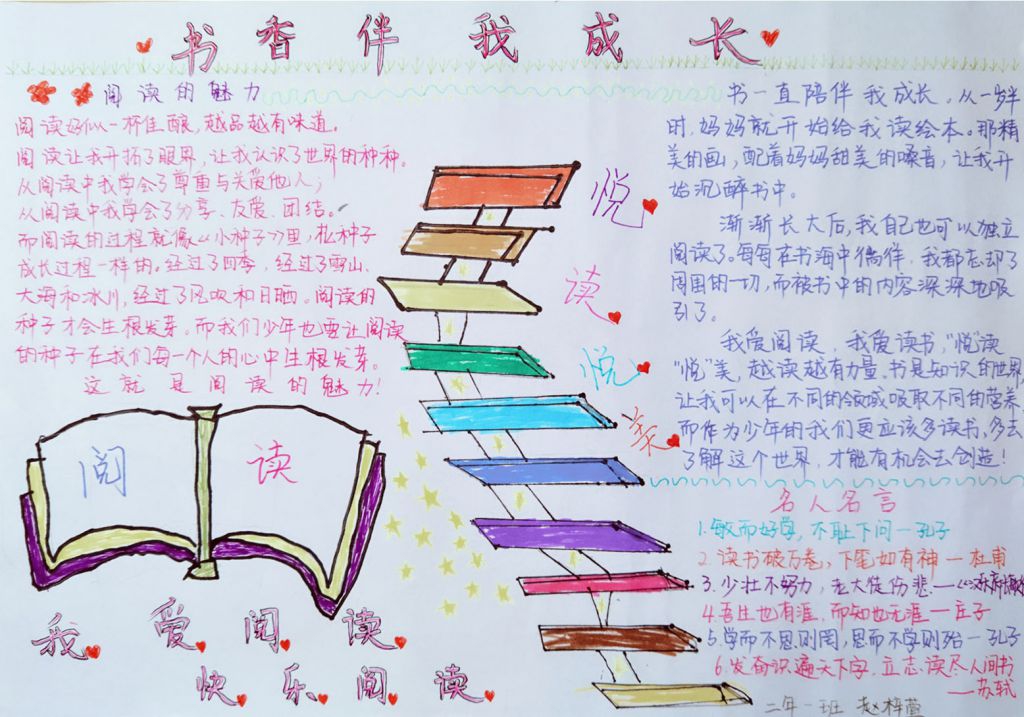 书香伴我成长
阅读的魅力
阅读好似一杯佳酿,越品越有味道。
阅读让我开拓了眼界,让我认识了世界的种种。
从阅读中我学会了尊重与关爱他人;
从阅读中我学会了分享、友爱、团结。
而阅读的过程就像《小种子》里,
成长过程一样的。经过了四季,经过了雪山、
大海和冰川,经过了风吹和日晒。阅读的
种子才会生根发芽。而我们少年也要让阅读
的种子在我们每一个人的心中生根发芽。
这就是阅读的魅力!
阅读
我爱阅读
快乐阅读
悦
读
悦
美
书一直陪伴我成长。从一岁半
时,妈妈就开始给我读绘本。那精
美的画,配着妈妈甜美的嗓音,让我开
始沉醉书中。
渐渐长大后,我自己也可以独立
阅读了。每每在书海中徜徉,我都忘却了
周围的一切,而被书中的内容深深地吸
引了。
我爱阅读,我爱读书,“悦”读
“悦”美,越读越有力量。书是知识的世界
让我可以在不同的领域吸取不同的营养
而作为少年的我们更应该多读书,多去
了解这个世界,才能有机会去创造!
名人名言
1.敏而好学,不耻下问—孔子
2.读书破万卷,下笔如有神—杜甫
3.少壮不努力,老大徒伤悲—
4.吾生也有涯,而知也无涯—庄子
5.学而不思则罔,思而不学则殆—孔子
6.发奋识遍天下字,立志读尽人间书
—苏轼
二年一班 赵梓萱